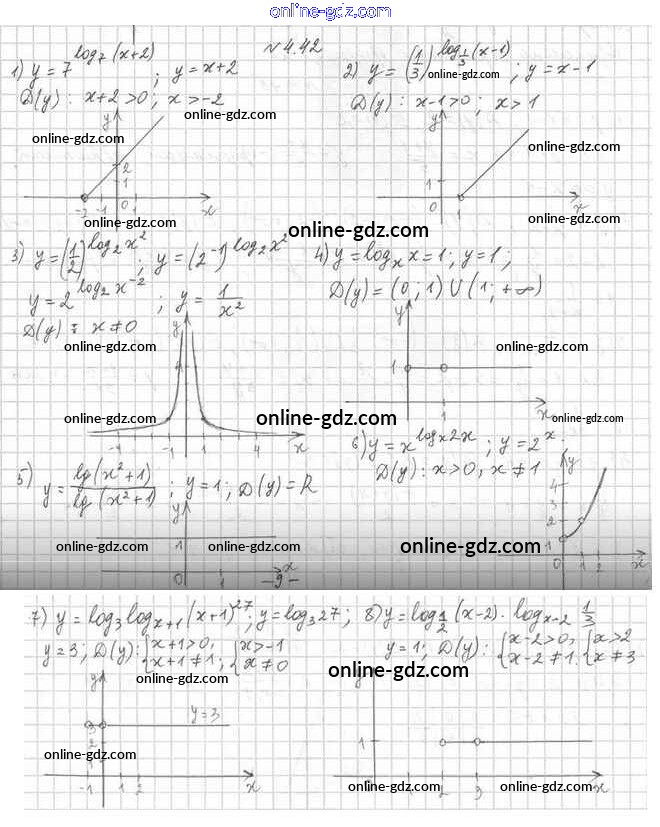 online-gdz.com
№ 4.42
1) y = 7^{log_7 (x+2)} ; y = x+2
D(y): x+2>0; x>-2
online-gdz.com
online-gdz.com
y
2
1
-2 -1 0 1 x
online-gdz.com
2) y = (1/3)^{log_{1/3} (x-1)} ; y = x-1
online-gdz.com
D(y): x-1>0; x>1
y
online-gdz.com
1
0 1 x
online-gdz.com
online-gdz.com
3) y = (1/2)^{log_2 x^2} ; y = (2^{-1})^{log_2 x^2}
y = 2^{log_2 x^{-2}} ; y = 1/x^2
D(y): x ≠ 0
online-gdz.com
y
4
online-gdz.com
online-gdz.com
-4 -1 1 4 x
4) y = log_x x = 1; y = 1;
D(y) = (0; 1) U (1; +∞)
y
online-gdz.com
1
1 x
online-gdz.com
5) y = lg(x^2+1)/lg(x^2+1) ; y = 1; D(y) = R
y
online-gdz.com
1
online-gdz.com
0 1 x
-9-
6) y = x^{log_x 2x} ; y = 2^x.
D(y): x>0, x ≠ 1
y
4
3
2
1
online-gdz.com
0 1 2 x
7) y = log_3 log_{x+1} (x+1)^{27}; y = log_3 27;
y = 3; D(y): { x+1>0, x+1≠1; { x>-1 x≠0
online-gdz.com
y
y=3
3
2
online-gdz.com
-1 1 2 x
online-gdz.com
8) y = log_{1/2} (x-2) · log_{x-2} 1/3
y = 1; D(y): { x-2>0, x-2≠1. { x>2 x≠3
online-gdz.com
y
1
2 3 x
online-gdz.com
online-gdz.com